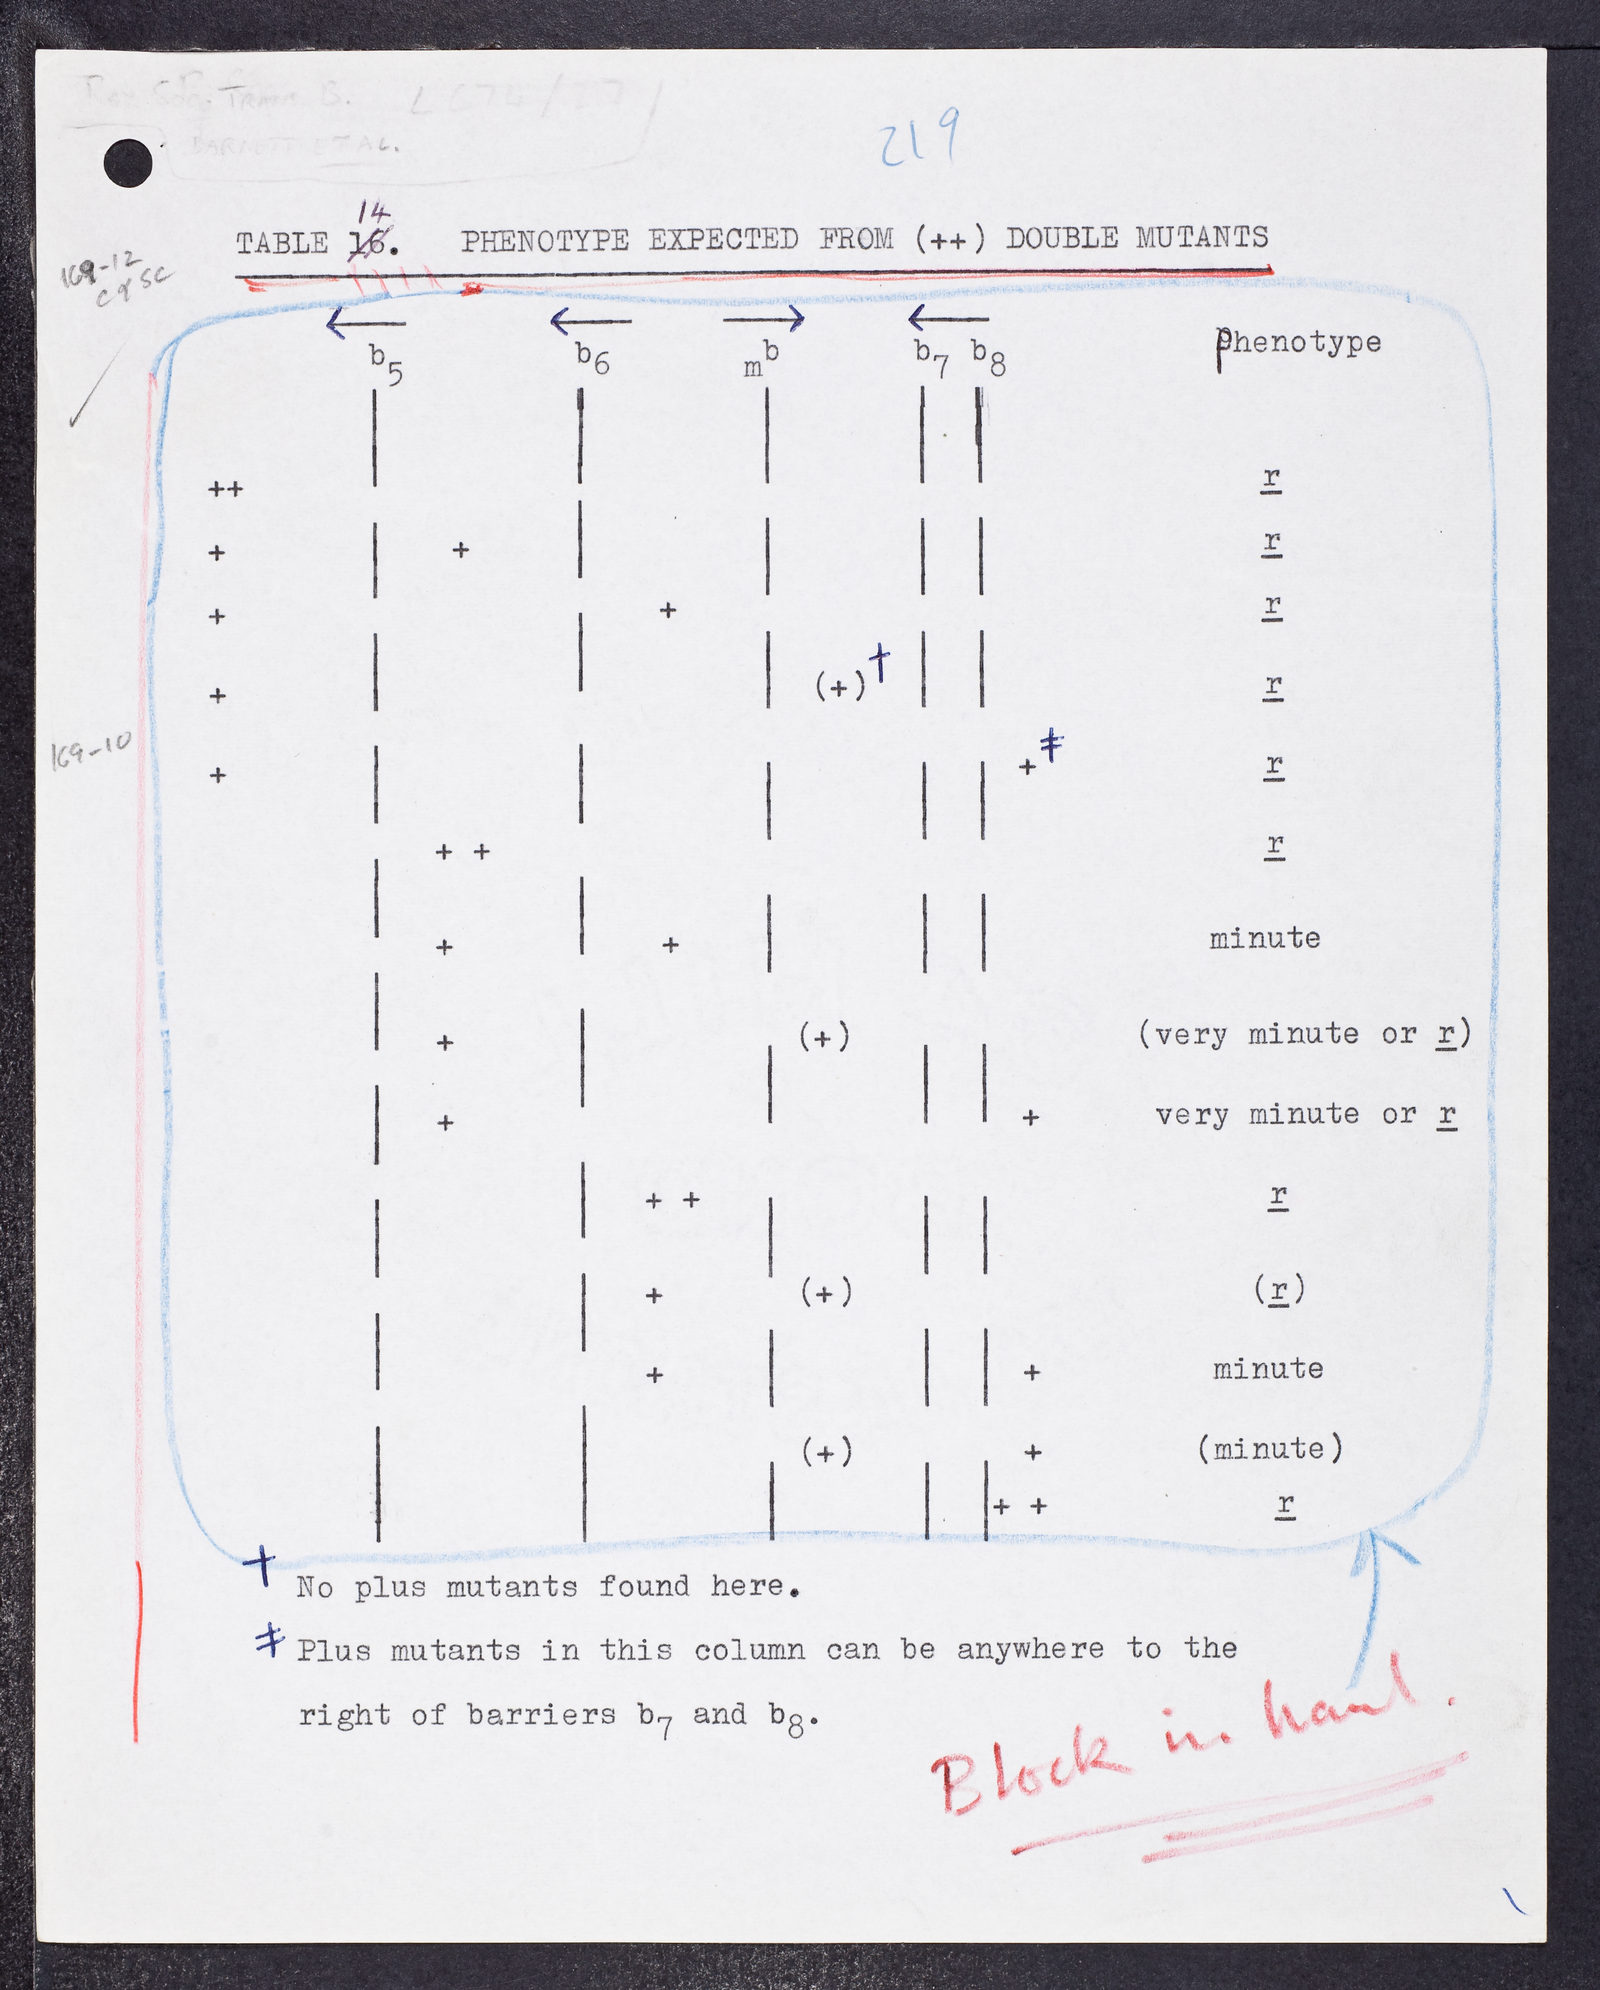 Roy. Soc. Trans B.
BARNETT ET AL.
219
14
TABLE 16. PHENOTYPE EXPECTED FROM (++) DOUBLE MUTANTS
169-12
← ← → ←
b5 b6 mb b7 b8 Phenotype
++ r
+ + r
+ + r
+ (+)† r
169-10
+ +‡ r
+ + r
+ + minute
+ (+) (very minute or r)
+ + very minute or r
+ + r
+ (+) (r)
+ + minute
(+) + (minute)
+ + r
† No plus mutants found here.
‡ Plus mutants in this column can be anywhere to the
right of barriers b7 and b8.
Block in hand.